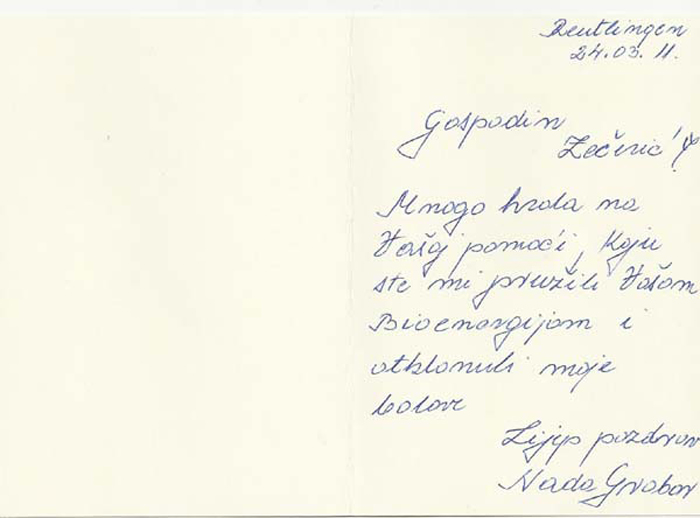 Reutlingen
24.03.11.
Gospodin
Zečević!
Mnogo hvala na
Vašoj pomoći, koju
ste mi pružili Vašom
Bioenergijom i
otklonuli moje
bolove
Lijep pozdrav
Nada Grabar